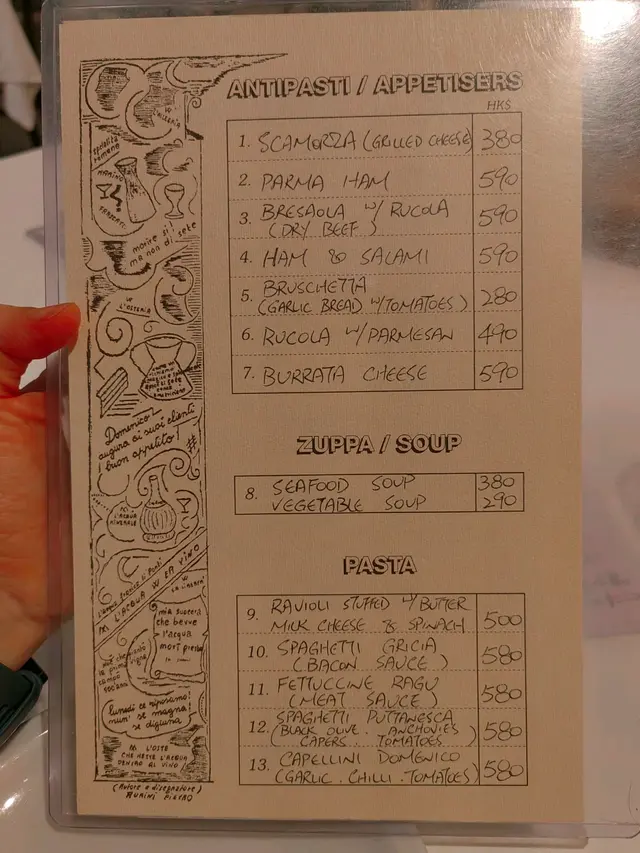 ANTIPASTI / APPETISERS
HK$
1. SCAMORZA (GRILLED CHEESE) 380
2. PARMA HAM 590
3. BRESAOLA W/ RUCOLA
(DRY BEEF) 590
4. HAM & SALAMI 590
5. BRUSCHETTA
(GARLIC BREAD W/TOMATOES) 280
6. RUCOLA W/PARMESAN 490
7. BURRATA CHEESE 590
ZUPPA / SOUP
8. SEAFOOD SOUP 380
VEGETABLE SOUP 290
PASTA
9. RAVIOLI STUFFED W/BUTTER
MILK CHEESE & SPINACH 500
10. SPAGHETTI GRICIA
(BACON SAUCE) 580
11. FETTUCCINE RAGU
(MEAT SAUCE) 580
12. SPAGHETTI PUTTANESCA
(BLACK OLIVE. ANCHOVIES
CAPERS. TOMATOES) 580
13. CAPELLINI DOMENICO
(GARLIC. CHILLI. TOMATOES) 580
morire si
ma non di sete
W
L'OSTERIA
Domenico
augura ai suoi clienti
buon appetito!
M L'ACQUA
MINERALE
M L'ACQUA W ER VINO
mia suocera
che beveva
l'acqua
morì presto
lunedì ce riposamo!
nun' se magna!
se diggiuna
M L'OSTE
CHE METTE L'ACQUA
DENTRO AL VINO!
(Autore e disegnatore)